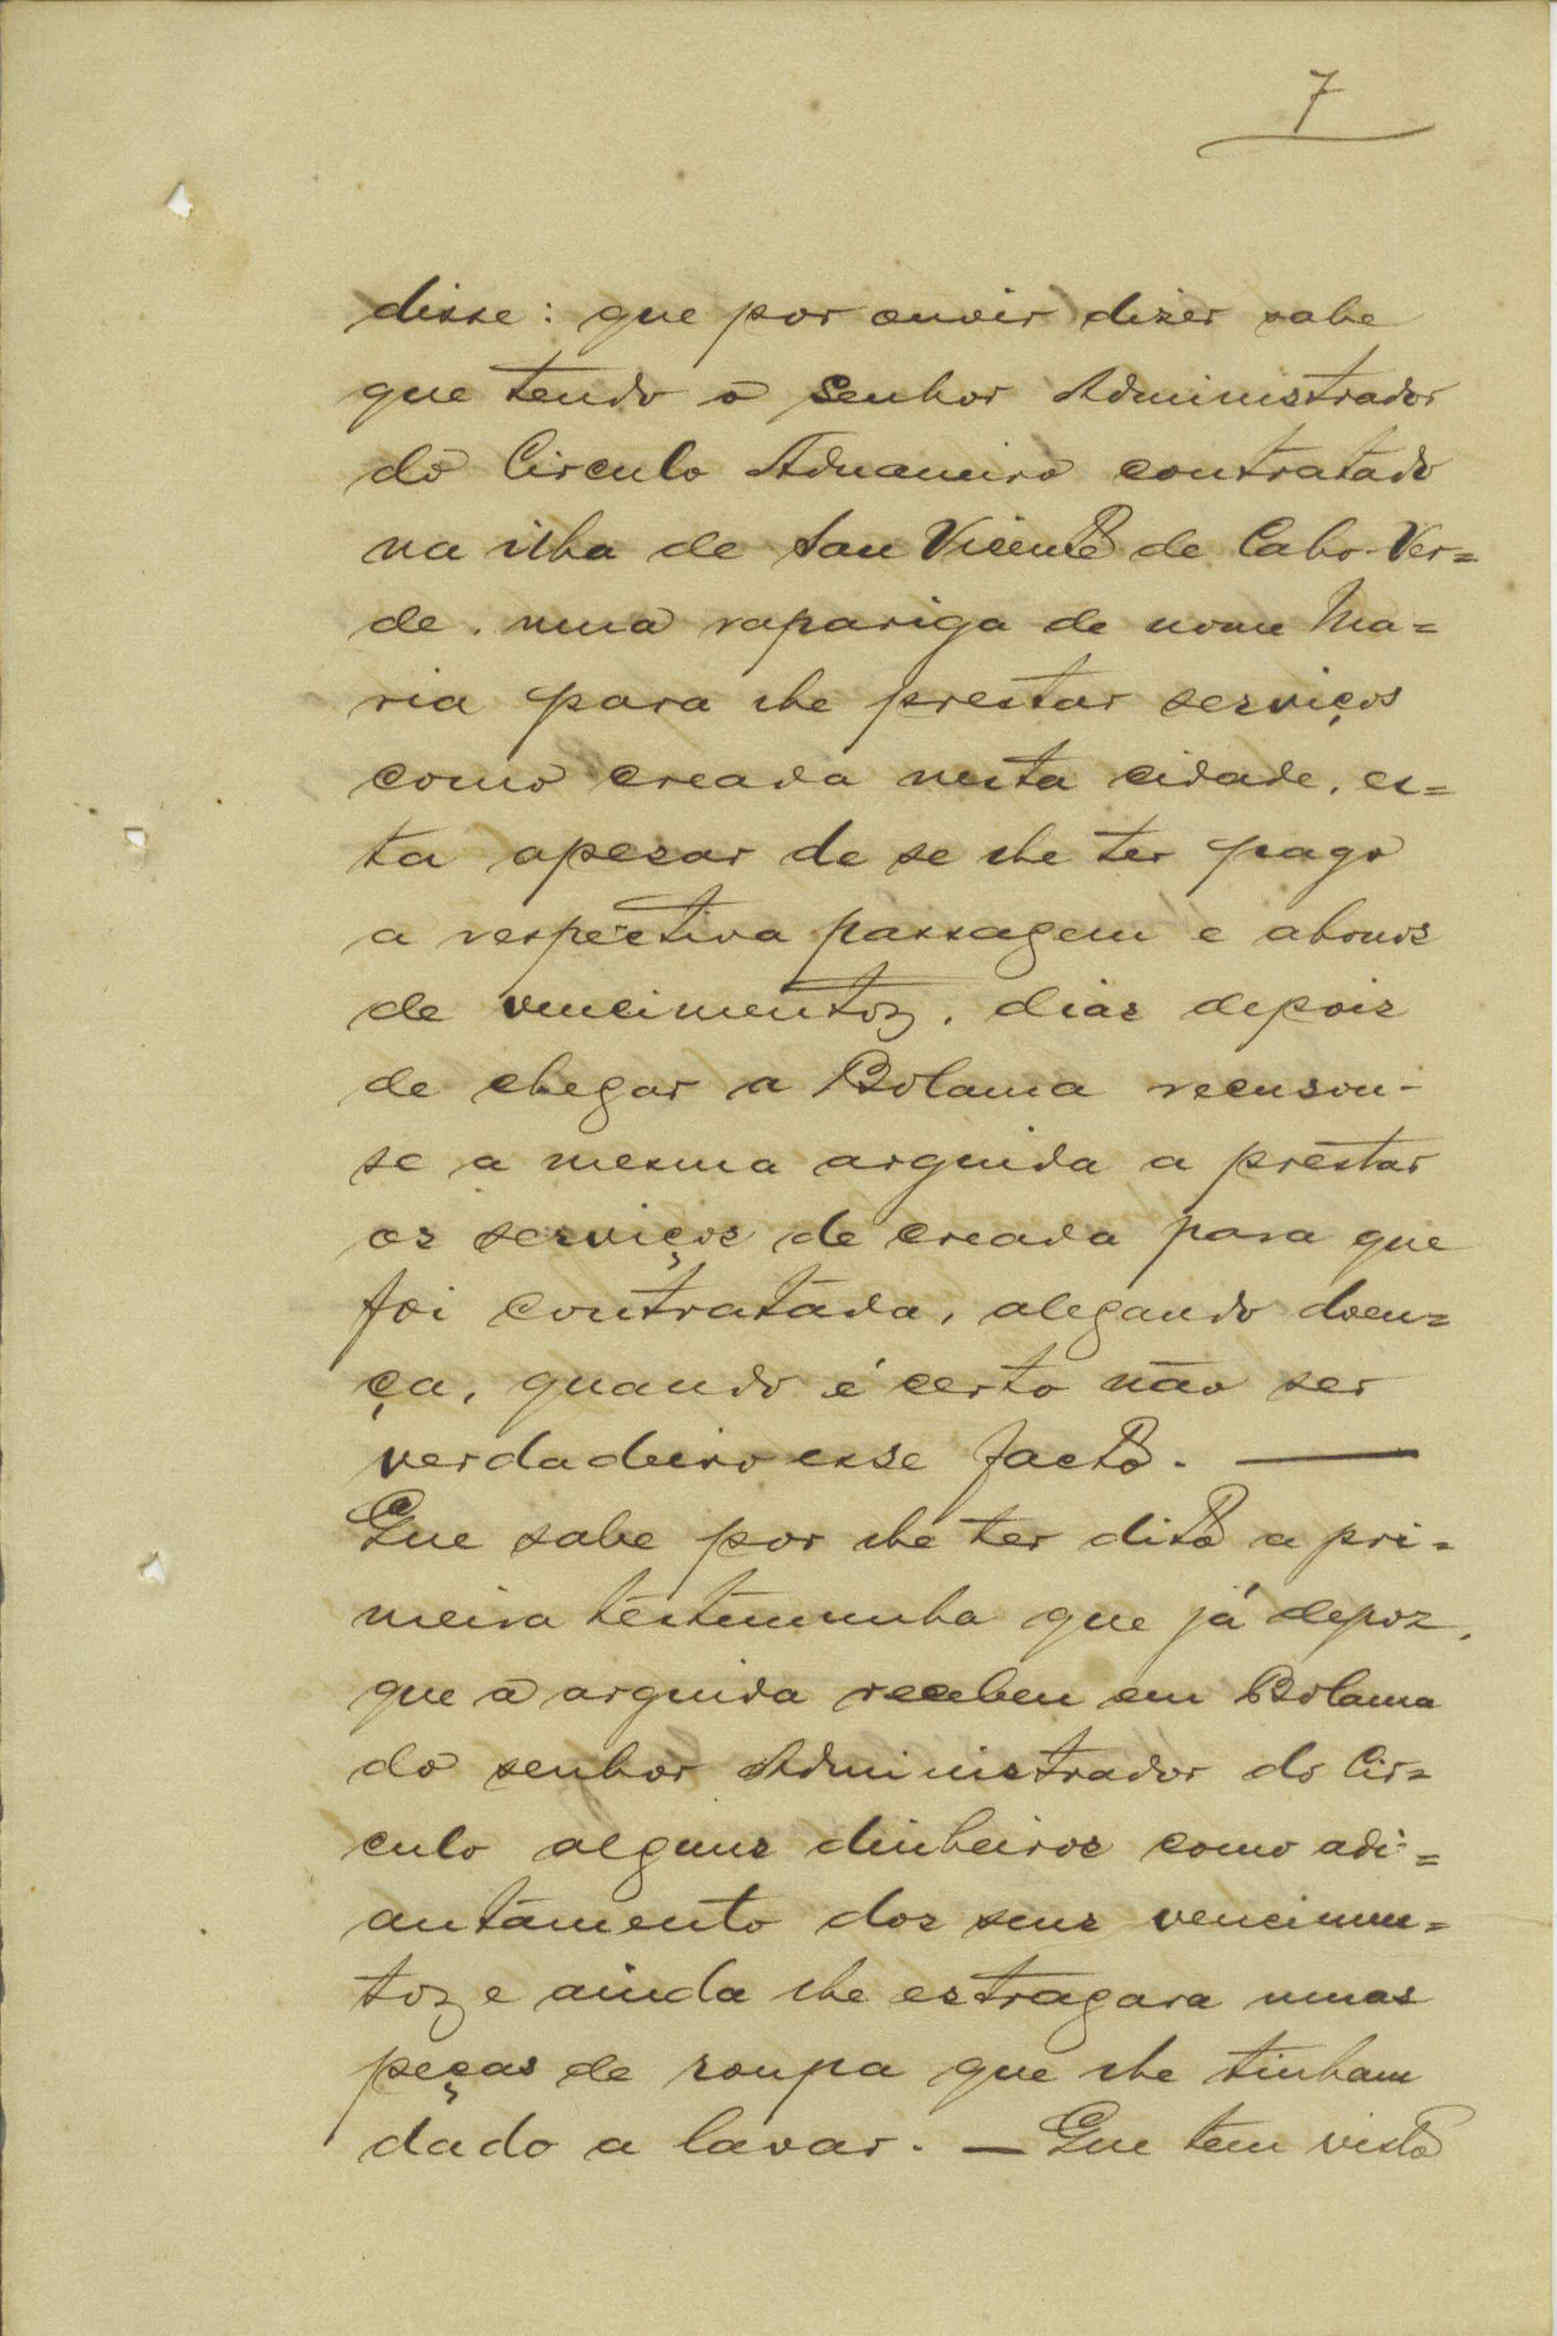 7
disse: que por ouvir dizer sabe
que tendo o Senhor Administrador
do Circulo Aduaneiro contratado
na ilha de San Vicente de Cabo-Ver=
de, uma rapariga de nome Ma=
ria para lhe prestar serviços
como creada nesta cidade, es=
ta apezar de se lhe ter pago
a respectiva passagem e abonos
de vencimentos, dias depois
de chegar a Bolama recusou-
se a mesma arguida a prestar
os serviços de creada para que
foi contratada, alegando doen=
ça, quando é certo não ser
verdadeiro esse facto. —
Que sabe por lhe ter dito a pri=
meira testemunha que já depoz,
que a arguida recebeu em Bolama
do senhor Administrador do Cir=
culo alguns dinheiros como adi=
antamento dos seus vencimen=
tos e ainda lhe estragara umas
peças de roupa que lhe tinham
dado a lavar. — Que tem visto